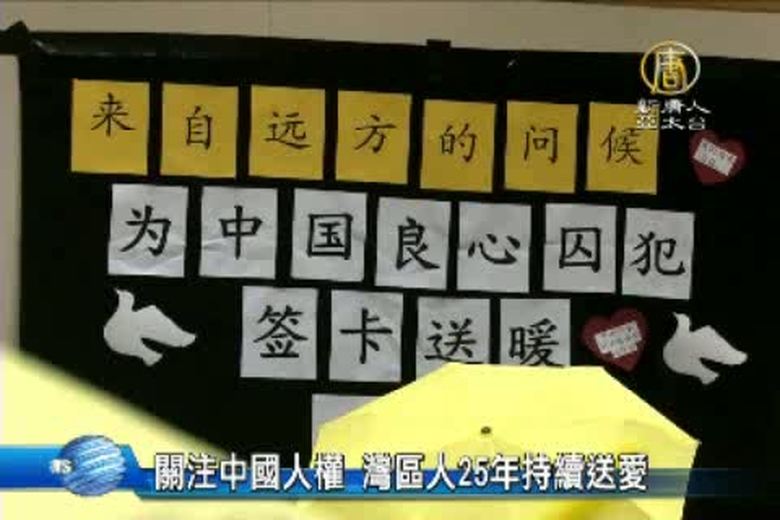 来自远方的问候
为中国良心囚犯
签卡送暖
新唐人
亞太台
關注中國人權 灣區人25年持續送愛